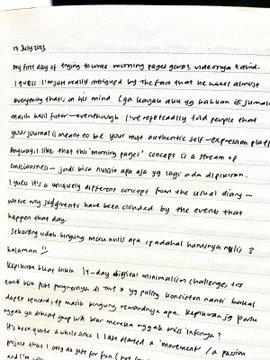 17 July 2023
my first day of trying to write morning pages gara2 videonya
I guess I'm just really intrigued by the fact that he writes almost
everything that's on his mind (ga kayak aku yg bahkan di jurnal
masih well filter — eventhough I've repeatedly told people that
your journal is meant to be your most authentic self-expression platf
Anyway, I like that this "morning pages" concept is a stream of
consciousness — jadi bisa nulis apa aja yg lagi ada dipikiran.
I guess it's a uniquely different concept from the usual diary —
where my judgments have been clouded by the events that
happen that day.
Sekarang udah bingung mau nulis apa ipadahal harusnya nulis 3
halaman
Kepikiran buat bikin 17-day digital minimalism challenge, trs
buat bisa post progressnya di dan yg paling konsisten nanti bakal
dapet reward, tp masih bingung rewardnya apa. Kepikiran jg perlu
nggak ya dibuat grup WA biar mereka nggak miss infonya?
It's been quite a while since I last started a 'movement' / a passion
project that I only do just for fun